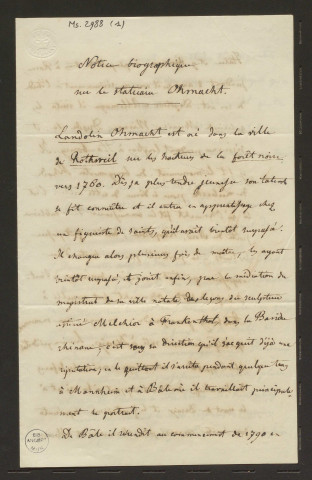 Ms. 2988 (1)
Notice biographique
sur le statuaire Ohmacht.
Landolin Ohmacht est né dans la ville
de Rothweil sur les hauteurs de la forêt noire
vers 1760. Dès sa plus tendre jeunesse son talent
se fit connaître et il entra en apprentissage chez
un figuriste de saints, qu'il avait bientôt surpassé.
Il changea alors plusieurs fois de maître, les ayant
bientôt surpassé, et joint enfin, par la médiation du
magistrat de sa ville natale des leçons du sculpteur
Melchior à Frankenthal dans la Bavière
rhénane, c'est sous sa direction qu'il s'acquit déjà une
réputation, en le quittant il s'arrêta pendant quelque tems
à Mannheim et à Bâle où il travaillait principale-
ment le portrait.
De Bâle il se rendit au commencement de 1790 en